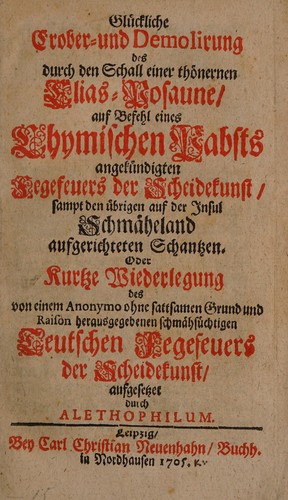 Glückliche
Erober- und Demolirung
des
durch den Schall einer thönernen
Elias-Posaune/
auf Befehl eines
Chymischen Pabsts
angekündigten
Fegefeuers der Scheidekunst/
sampt den übrigen auf der Insul
Schmäheland
aufgerichteten Schantzen.
Oder
Kurtze Wiederlegung
des
von einem Anonymo ohne sattsamen Grund und
Raison herausgegebenen schmähsüchtigen
Teutschen Fegefeuers
der Scheidekunst/
aufgesetzet
durch
ALETHOPHILUM.
Leipzig/
Bey Carl Christian Neuenhahn/ Buchh.
in Nordhausen 1705.